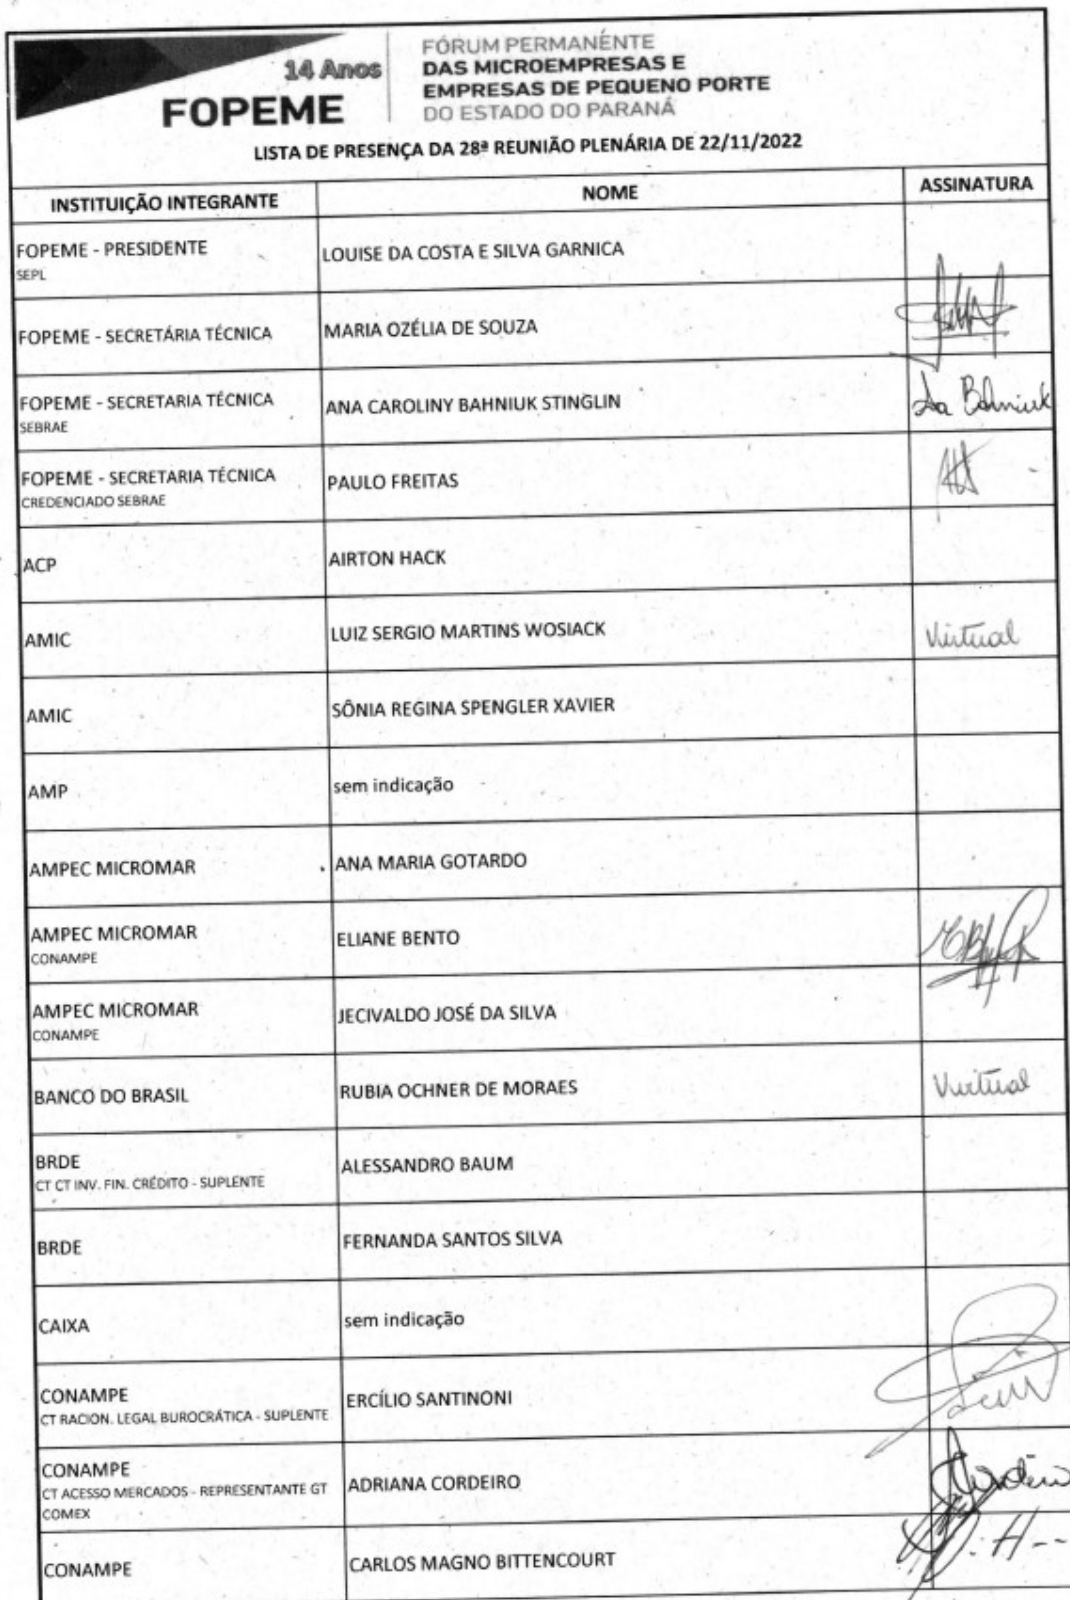 14 Anos
FOPEME
FÓRUM PERMANENTE
DAS MICROEMPRESAS E
EMPRESAS DE PEQUENO PORTE
DO ESTADO DO PARANÁ
LISTA DE PRESENÇA DA 28ª REUNIÃO PLENÁRIA DE 22/11/2022
INSTITUIÇÃO INTEGRANTE NOME ASSINATURA
FOPEME - PRESIDENTE LOUISE DA COSTA E SILVA GARNICA
SEPL
FOPEME - SECRETÁRIA TÉCNICA MARIA OZÉLIA DE SOUZA
FOPEME - SECRETARIA TÉCNICA ANA CAROLINY BAHNIUK STINGLIN Bahniuk
SEBRAE
FOPEME - SECRETARIA TÉCNICA PAULO FREITAS
CREDENCIADO SEBRAE
ACP AIRTON HACK
AMIC LUIZ SERGIO MARTINS WOSIACK Virtual
AMIC SÔNIA REGINA SPENGLER XAVIER
AMP sem indicação
AMPEC MICROMAR ANA MARIA GOTARDO
AMPEC MICROMAR ELIANE BENTO
CONAMPE
AMPEC MICROMAR JECIVALDO JOSÉ DA SILVA
CONAMPE
BANCO DO BRASIL RUBIA OCHNER DE MORAES Virtual
BRDE ALESSANDRO BAUM
CT CT INV. FIN. CRÉDITO - SUPLENTE
BRDE FERNANDA SANTOS SILVA
CAIXA sem indicação
CONAMPE ERCÍLIO SANTINONI
CT RACION. LEGAL BUROCRÁTICA - SUPLENTE
CONAMPE ADRIANA CORDEIRO
CT ACESSO MERCADOS - REPRESENTANTE GT
COMEX
CONAMPE CARLOS MAGNO BITTENCOURT